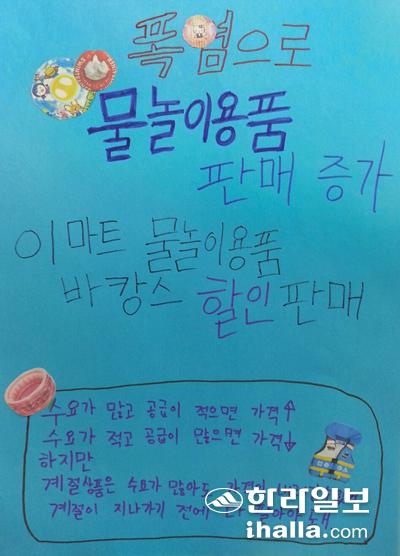 폭염으로
물놀이용품
판매 증가
이마트 물놀이용품
바캉스 할인판매
수요가 많고 공급이 적으면 가격↑
수요가 적고 공급이 많으면 가격↓
하지만
계절상품은 수요가 많아도 가격이
계절이 지나가기 전에
한라일보
ihalla.com